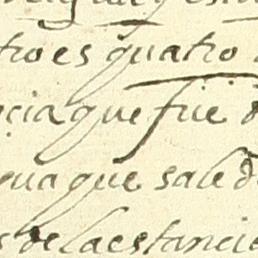 troes quatro
cia que fue
gua que sale d
s de la estancie